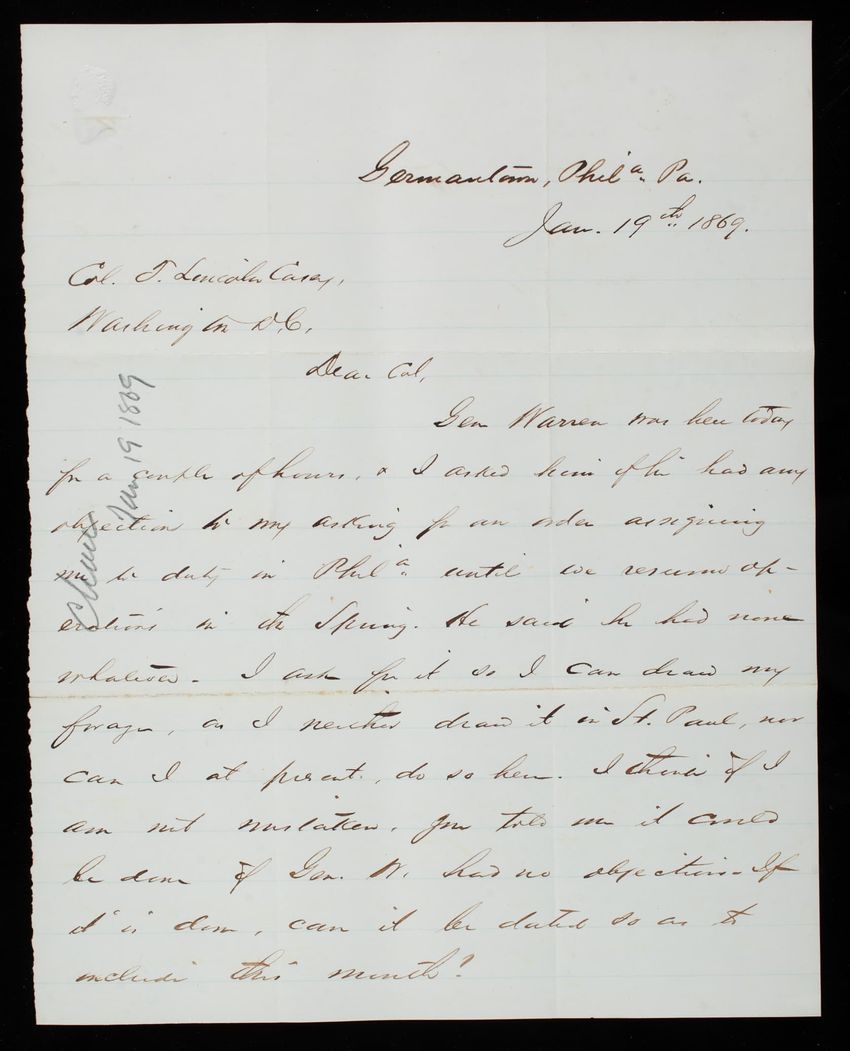 Germantown, Phila. Pa.
Jan. 19th 1869.
Col. T. Lincoln Casey,
Washington D.C.
Dear Col,
Gen Warren was here today
for a couple of hours, & I asked him if he had any
objection to my asking for an order assigning
me to duty in Phila. until we resume op-
erations in the Spring. He said he had none
whatever - I ask for it so I can draw my
forage, as I neither draw it in St. Paul, nor
can I at present, do so here. I think if I
am not mistaken, you told me it could
be done if Gen. W. had no objections - If
it is done, can it be dated so as to
include this month?
Jan 19 1869